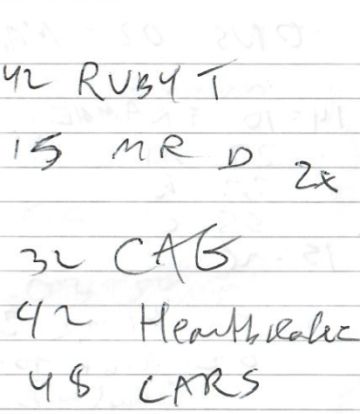 42 RUBY T
15 MR D 2x
32 CAG
42 Heartbreaker
48 CARS